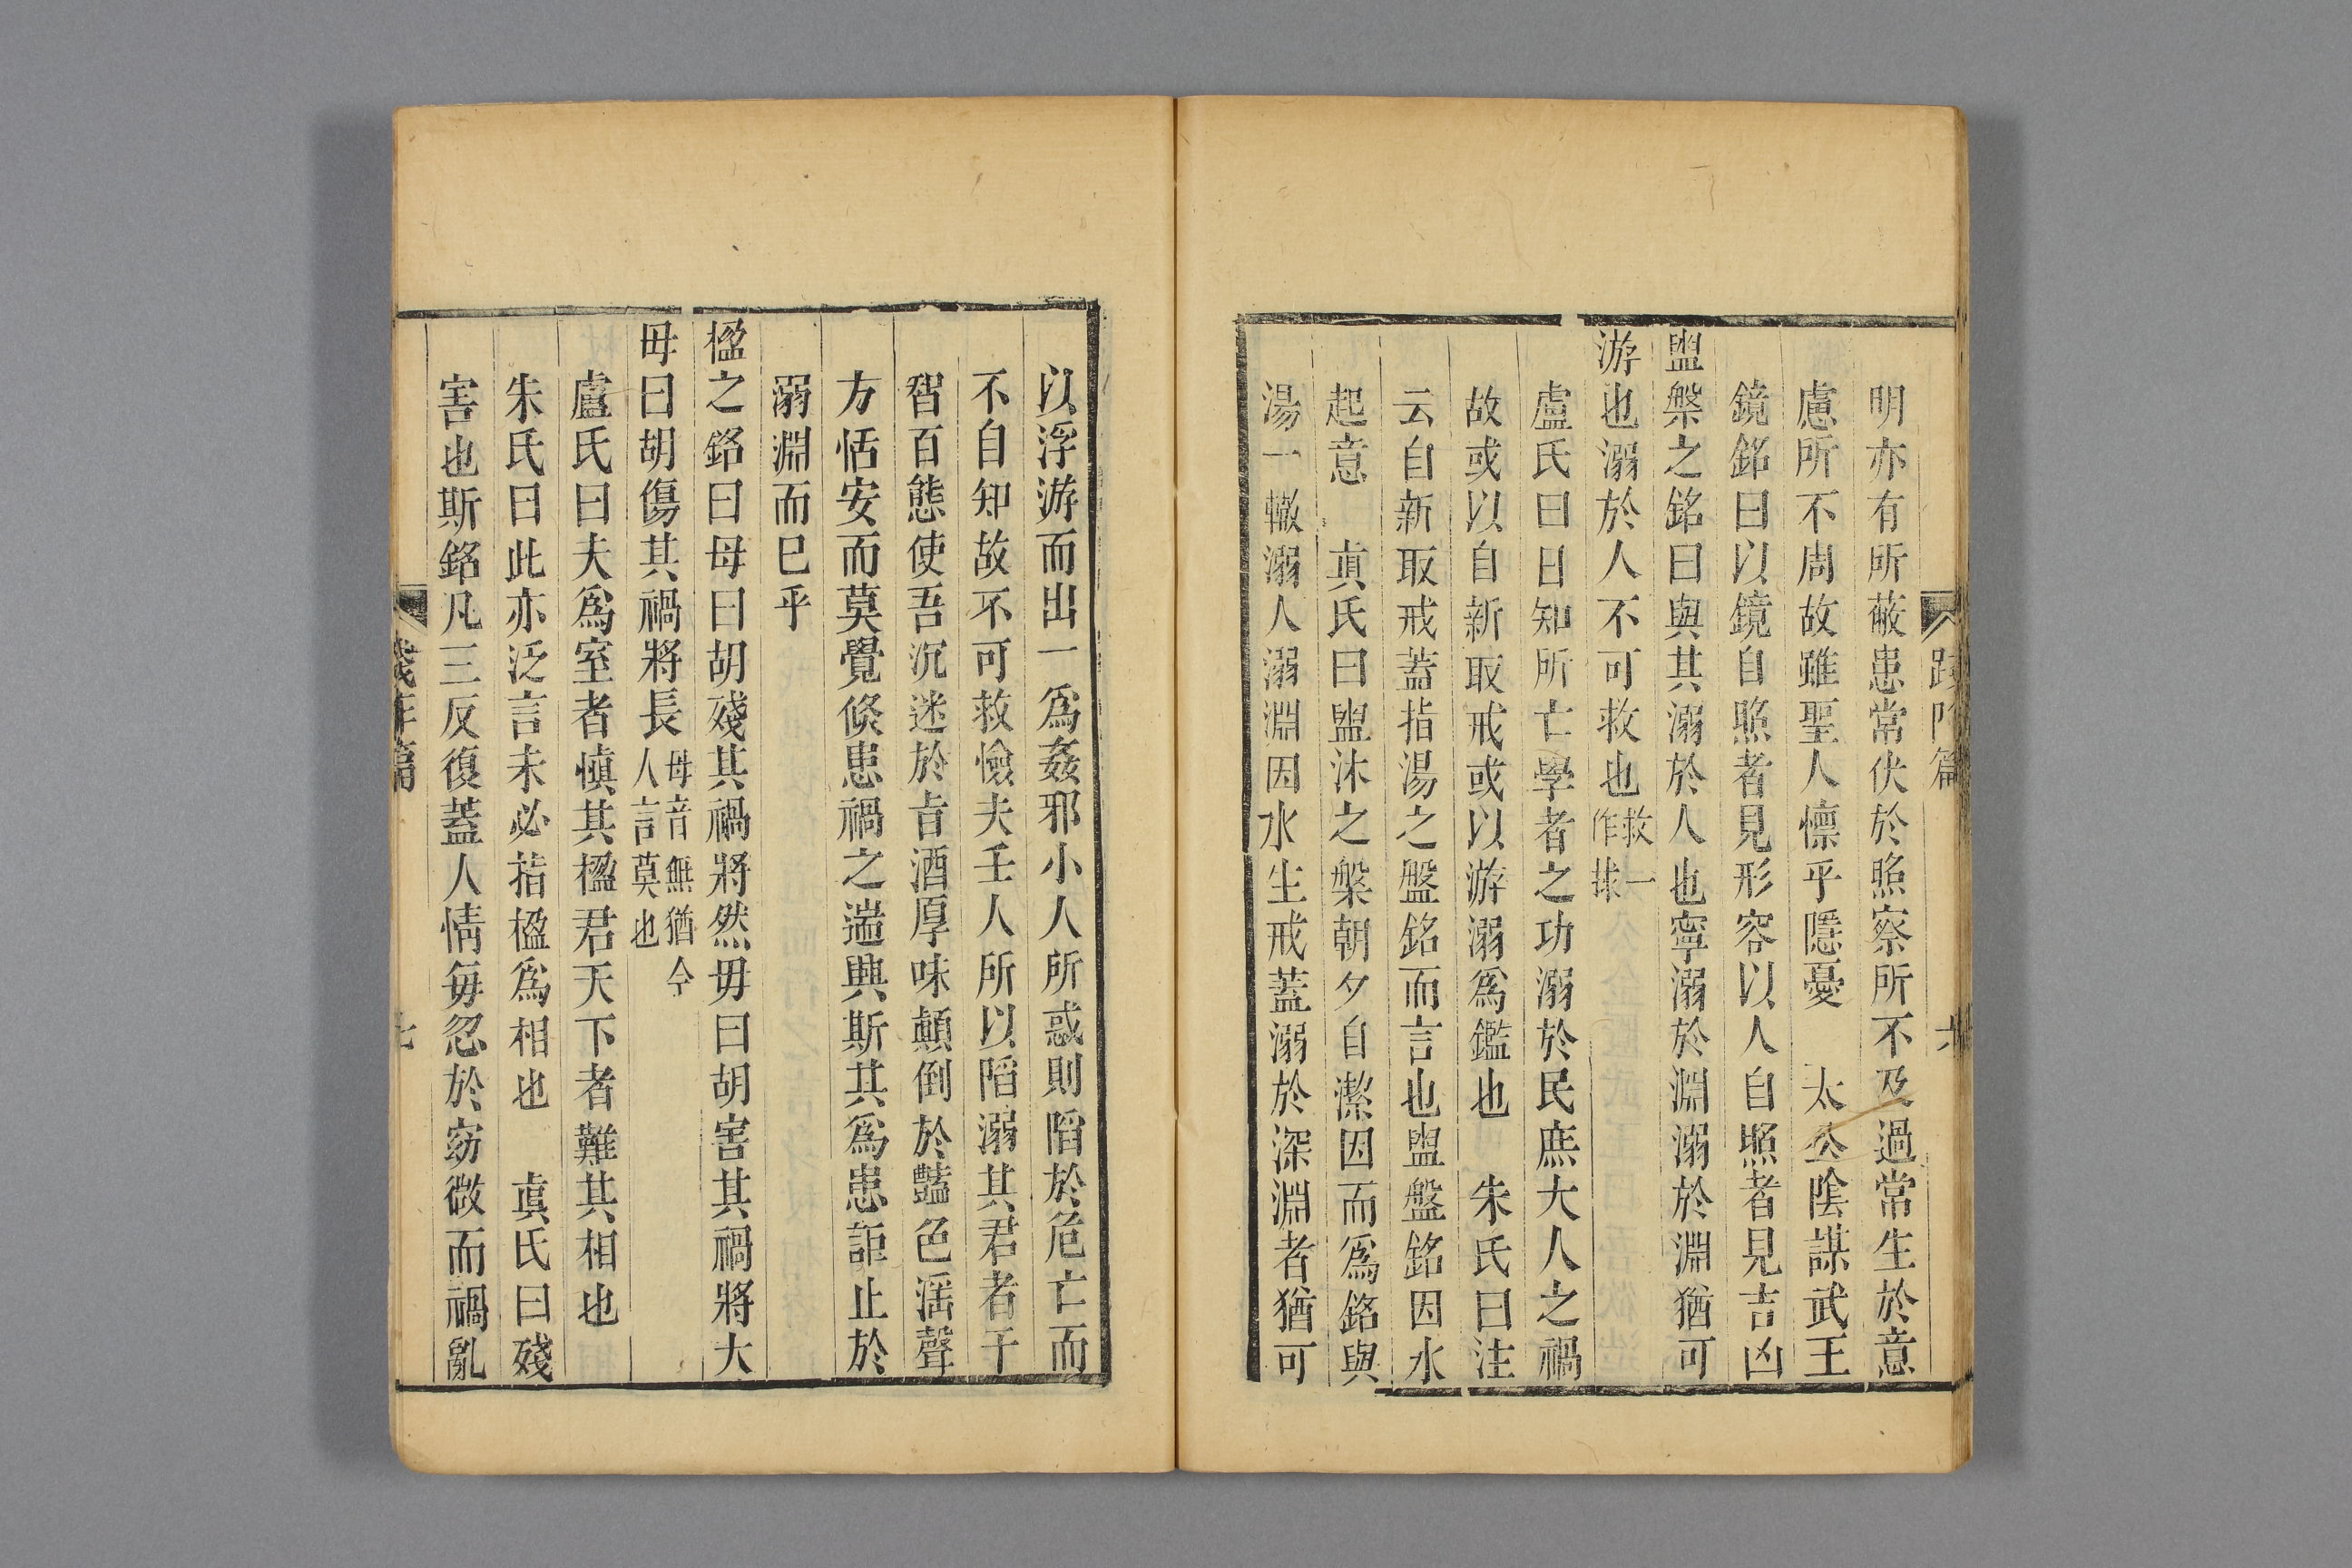 明亦有所蔽患常伏於照察所不及過常生於意
慮所不周故雖聖人懔乎隱憂　太公陰謀武王
鏡銘曰以鏡自照者見形容以人自照者見吉凶
盥槃之銘曰與其溺於人也寧溺於淵溺於淵猶可
游也溺於人不可救也救一作捄
盧氏曰日知所亡學者之功溺於民庶大人之禍
故或以自新取戒或以游溺爲鑑也　朱氏曰注
云自新取戒蓋指湯之盤銘而言也盥盤銘因水
起意　眞氏曰盥沐之槃朝夕自潔因而爲銘與
湯一轍溺人溺淵因水生戒蓋溺於深淵者猶可
以浮游而出一爲姦邪小人所惑則陷於危亡而
不自知故不可救憸夫壬人所以陷溺其君者千
智百態使吾沉迷於旨酒厚味顛倒於豔色滛聲
方恬安而莫覺倐患禍之遄興斯其爲患詎止於
溺淵而巳乎
楹之銘曰毋曰胡殘其禍將然毋曰胡害其禍將大
毋曰胡傷其禍將長毋音無猶今人言莫也
盧氏曰夫爲室者愼其楹君天下者難其相也
朱氏曰此亦泛言未必指楹爲相也　眞氏曰殘
害也斯銘凡三反復蓋人情每忽於窈微而禍亂
踐阼篇
七